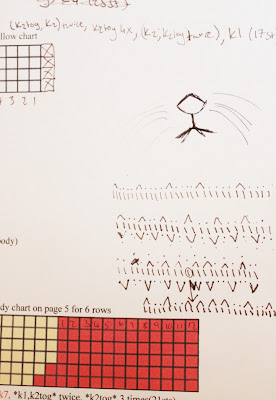 (k2tog, k2) twice, k2tog 4x, (k2, k2tog twice), k1 (17st
llow chart
4 3 2 1
ody)
dy chart on page 5 for 6 rows
1 2 3 4 5 6 7 8 9 10 11 12
k7, *k1,k2tog* twice, *k2tog* 3 times(21sts)